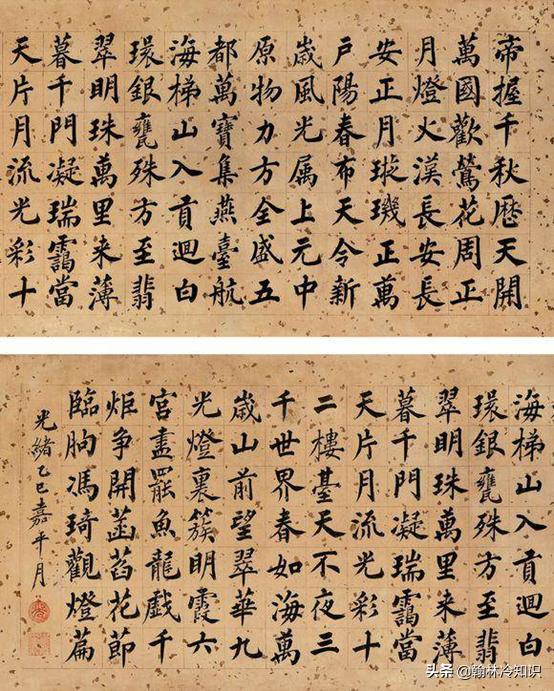 帝握千秋歷天開
萬國歡鶯花周正
月燈火漢長安長
安正月璇璣正萬
戶陽春布天令新
歲風光属上元中
原物力方全盛五
都萬寶集燕臺航
海梯山入貢迴白
環銀甕殊方至翡
翠明珠萬里来薄
暮千門凝瑞靄當
天片月流光彩十
海梯山入貢迴白
環銀甕殊方至翡
翠明珠萬里来薄
暮千門凝瑞靄當
天片月流光彩十
二樓臺天不夜三
千世界春如海萬
歲山前望翠華九
光燈裏簇明霞六
宮盡罷魚龍戲千
炬争開菡萏花節
臨朐馮琦觀燈篇
光緒乙巳嘉平月
头条 @翰林冷知识